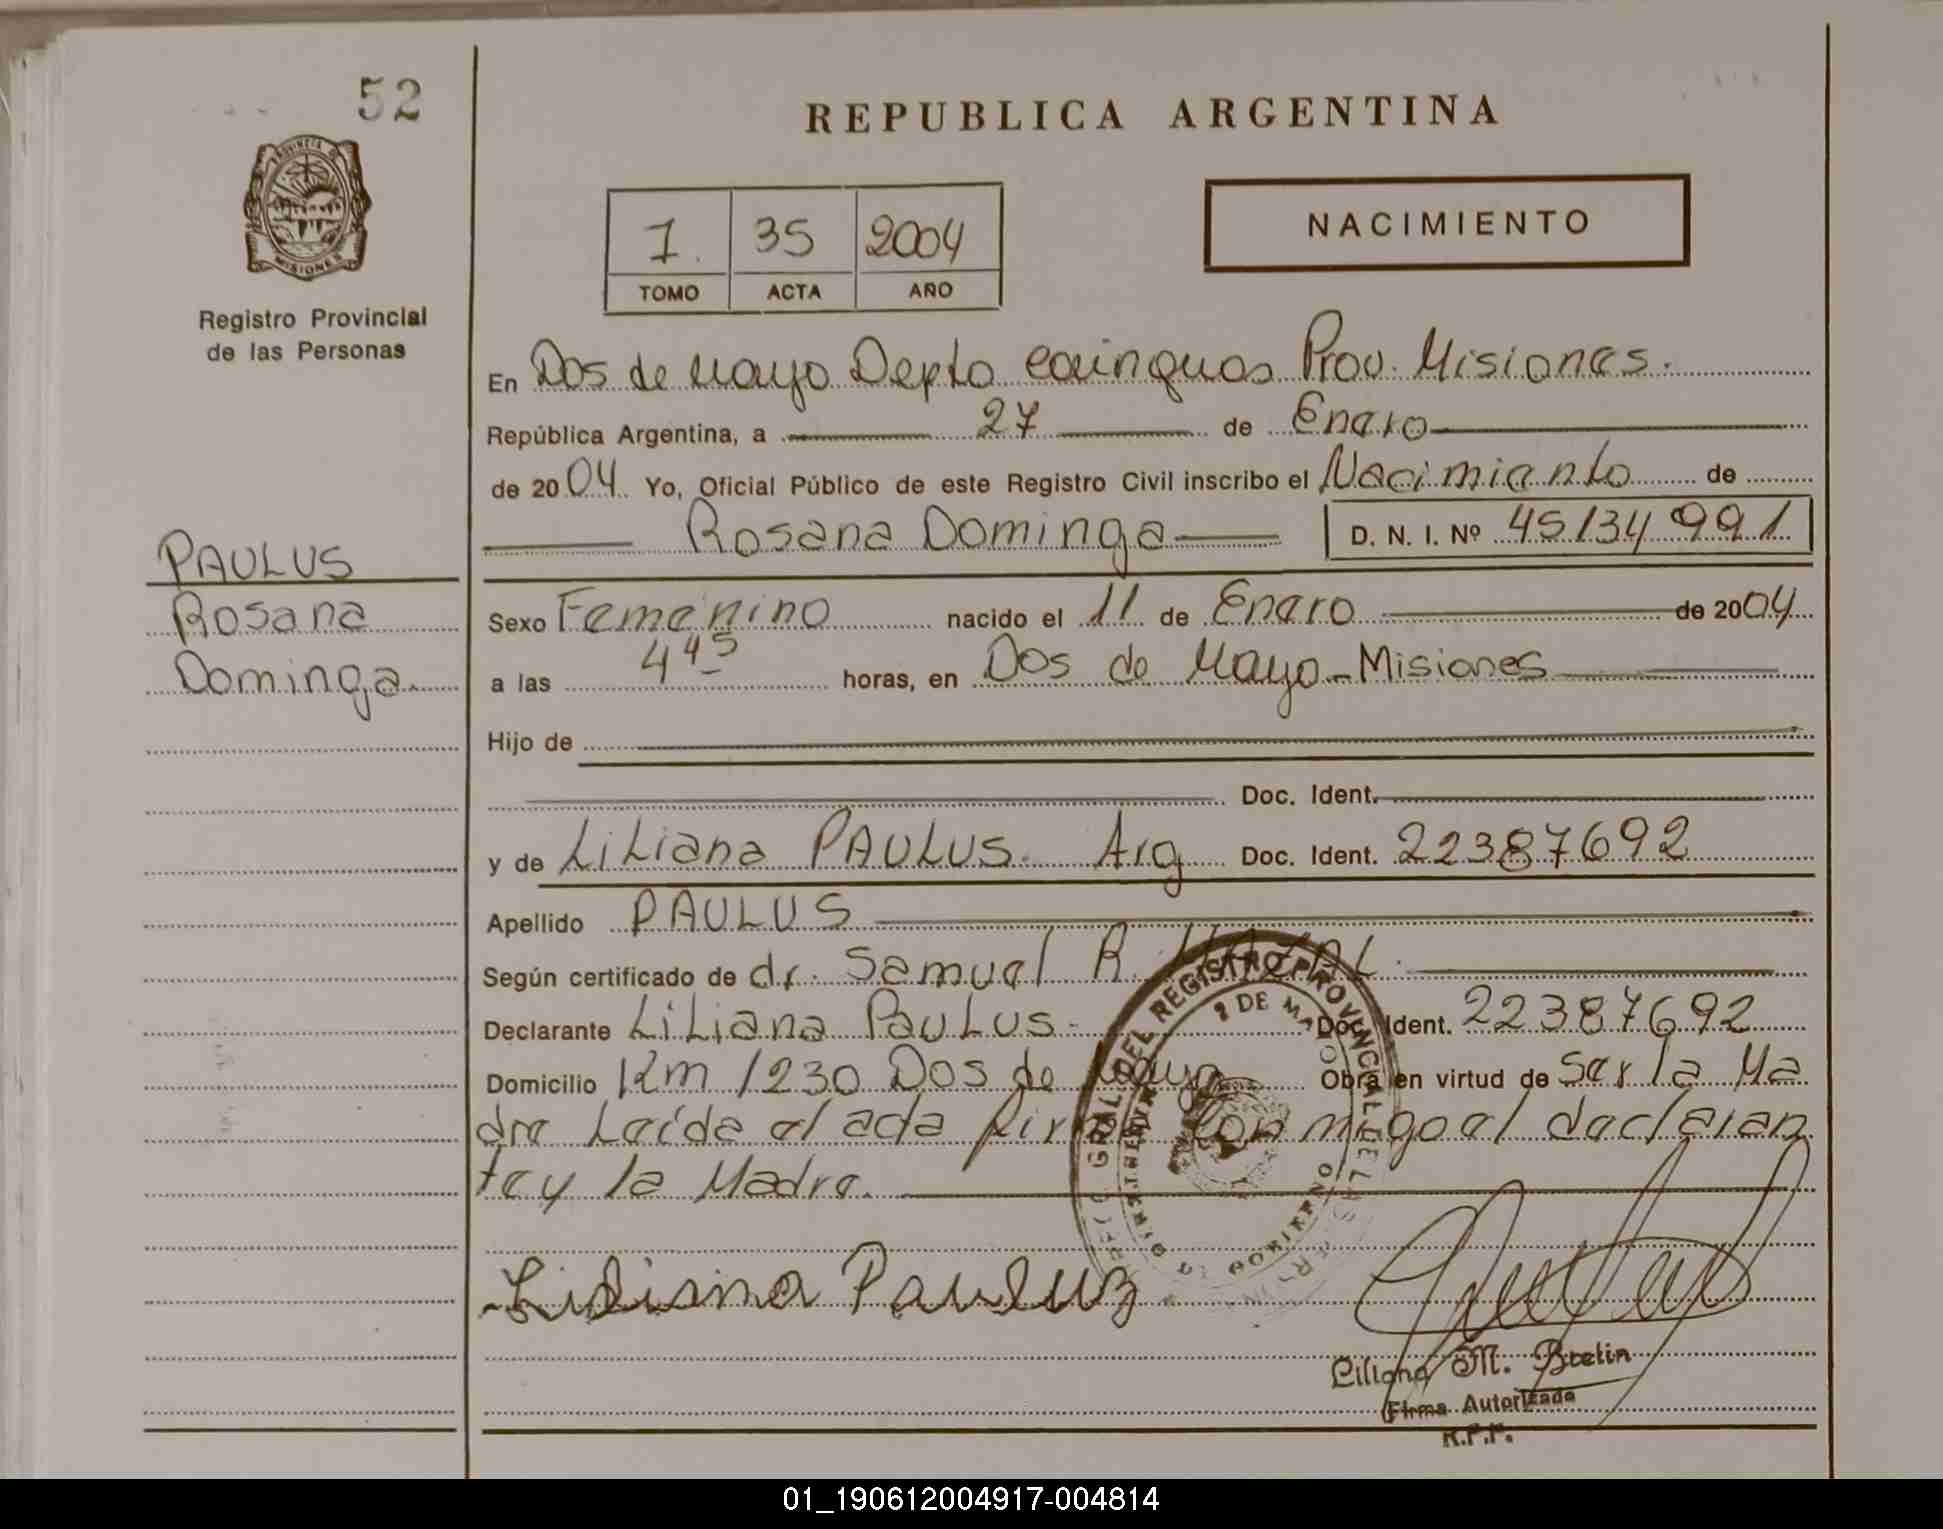 52
REPUBLICA ARGENTINA
PROVINCIA DE
MISIONES
Registro Provincial
de las Personas
1. 35 2004
TOMO ACTA AÑO
NACIMIENTO
En Dos de Mayo Depto Cainguas Prov. Misiones.
República Argentina, a 27 de Enero
de 2004. Yo, Oficial Público de este Registro Civil inscribo el Nacimiento de
Rosana Dominga D. N. I. Nº 45134991
PAULUS
Rosana
Dominga
Sexo Femenino nacido el 11 de Enero de 2004
a las 4 45 horas, en Dos de Mayo - Misiones
Hijo de
Doc. Ident.
y de Liliana PAULUS. Arg Doc. Ident. 22387692
Apellido PAULUS
Según certificado de dr. Samuel R.
Declarante Liliana Paulus. Doc. Ident. 22387692
Domicilio Km 1230 Dos de Mayo Obra en virtud de Ser la Ma
dre Leída el acta firma conmigo el declaran
te y la Madre.
2 DE MAYO
GOBIERNO
Liliana Pauluz
Liliana M. Bretin
Firma Autorizada
R.P.P.
01_190612004917-004814